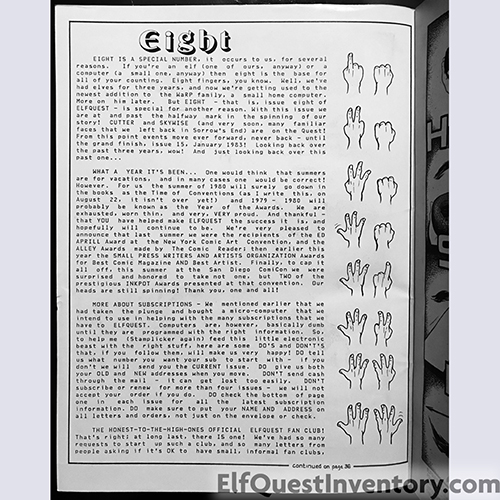 Eight
EIGHT IS A SPECIAL NUMBER, it occurs to us, for several
reasons. If you're an elf (one of ours, anyway) or a
computer (a small one, anyway) then eight is the base for
all of your counting. Eight fingers, you know. Well, we've
had elves for three years, and now we're getting used to the
newest addition to the WaRP family, a small home computer.
More on him later. But EIGHT - that is, issue eight of
ELFQUEST - is special for another reason. With this issue we
are at and past the halfway mark in the spinning of our
story! CUTTER and SKYWISE (and very soon, many familiar
faces that we left back in Sorrow's End) are on the Quest!
From this point events move ever forward, never back - until
the grand finish, issue 15, January 1983! Looking back over
the past three years, wow! And just looking back over this
past one...
WHAT A YEAR IT'S BEEN... One would think that summers
are for vacations, and in many cases one would be correct!
However, for us the summer of 1980 will surely go down in
the books as the Time of Conventions (as I write this, on
August 22, it isn't over yet!) and 1979 - 1980 will
probably be known as the Year of the Awards. We are
exhausted, worn thin, and very, VERY proud. And thankful -
that YOU have helped make ELFQUEST the success it is, and
hopefully will continue to be. We're very pleased to
announce that last summer we were the recipients of the ED
APRILL Award at the New York Comic Art Convention, and the
ALLEY Awards made by The Comic Reader; then earlier this
year the SMALL PRESS WRITERS AND ARTISTS ORGANIZATION Awards
for Best Comic Magazine AND Best Artist. Finally, to cap it
all off, this summer at the San Diego ComiCon we were
surprised and honored to take not one, but TWO of the
prestigious INKPOT Awards presented at that convention. Our
heads are still spinning! Thank you, one and all!
MORE ABOUT SUBSCRIPTIONS - We mentioned earlier that we
had taken the plunge and bought a micro-computer that we
intend to use in helping with the many subscriptions that we
have to ELFQUEST. Computers are, however, basically dumb
until they are programmed with the right information. So,
to help me (Stamplicker again) feed this little electronic
beast with the right stuff, here are some DO'S and DON'T'S
that, if you follow them, will make us very happy! DO tell
us what number you want your sub to start with - if you
don't we will send you the CURRENT issue. DO give us both
your OLD and NEW addresses when you move. DON'T send cash
through the mail - it can get lost too easily. DON'T
subscribe or renew for more than four issues - we will not
accept your order if you do. DO check the bottom of page
one in each issue for all the latest subscription
information. DO make sure to put your NAME AND ADDRESS on
all letters and orders, not just on the envelope or check.
THE HONEST-TO-THE-HIGH-ONES OFFICIAL ELFQUEST FAN CLUB!
That's right; at long last, there IS one! We've had so many
requests to start up such a club, and so many letters from
people asking if it's OK to have small, informal fan clubs,
continued on page 36
ElfQuestInventory.com